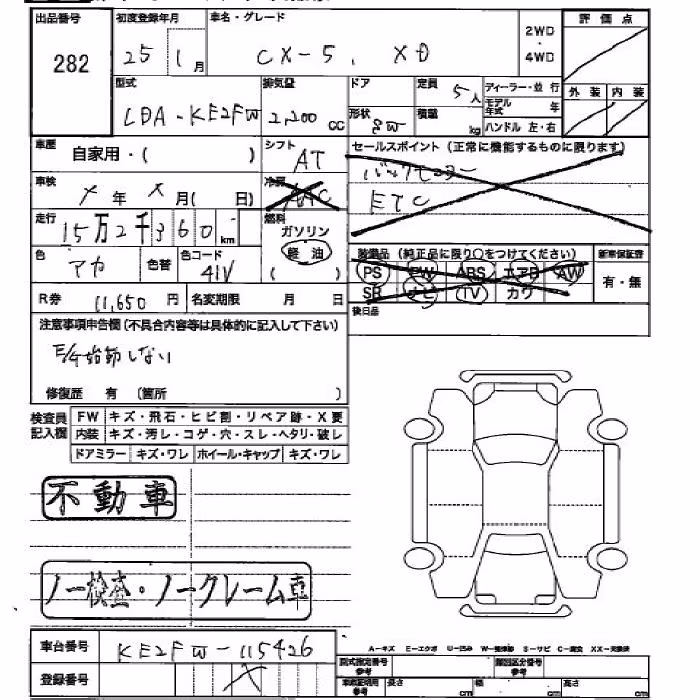 出品番号 初度登録年月 車名・グレード 評価点
282 25 1月 CX-5, XD 2WD・4WD
型式 排気量 ドア 定員 5人 ディーラー・並行 外装 内装
LDA-KE2FW 2,200cc 形状 5W 積載 kg モデル年式 年
ハンドル 左・右
車歴 自家用・( ) シフト AT セールスポイント(正常に機能するものに限ります)
車検 メ年 メ月( 日) 冷房 AAC バックモニター
ETC
走行 15万2千360km 燃料 ガソリン
軽油
( )
色 アカ 色替 色コード 41V
装備品(純正品に限り○をつけてください) 新車保証書
PS PW ABS エアB AW 有・無
SR ナビ TV カワ
R券 11,650円 名変期限 月 日 後日品
注意事項申告欄(不具合内容等は具体的に記入して下さい)
E/G始動しない
修復歴 有 (箇所 )
検査員記入欄 FW キズ・飛石・ヒビ割・リペア跡・X要
内装 キズ・汚レ・コゲ・穴・スレ・ヘタリ・破レ
ドアミラー キズ・ワレ ホイール・キャップ キズ・ワレ
不動車
ノー検査・ノークレーム車
車台番号 KE2FW-115426
登録番号 メ
A-キズ E-エクボ U-凹み W-補修跡 S-サビ C-腐食 XX-交換済
型式指定番号 参考 類別区分番号 参考
車庫証明用 参考 長さ cm 幅 cm 高さ cm